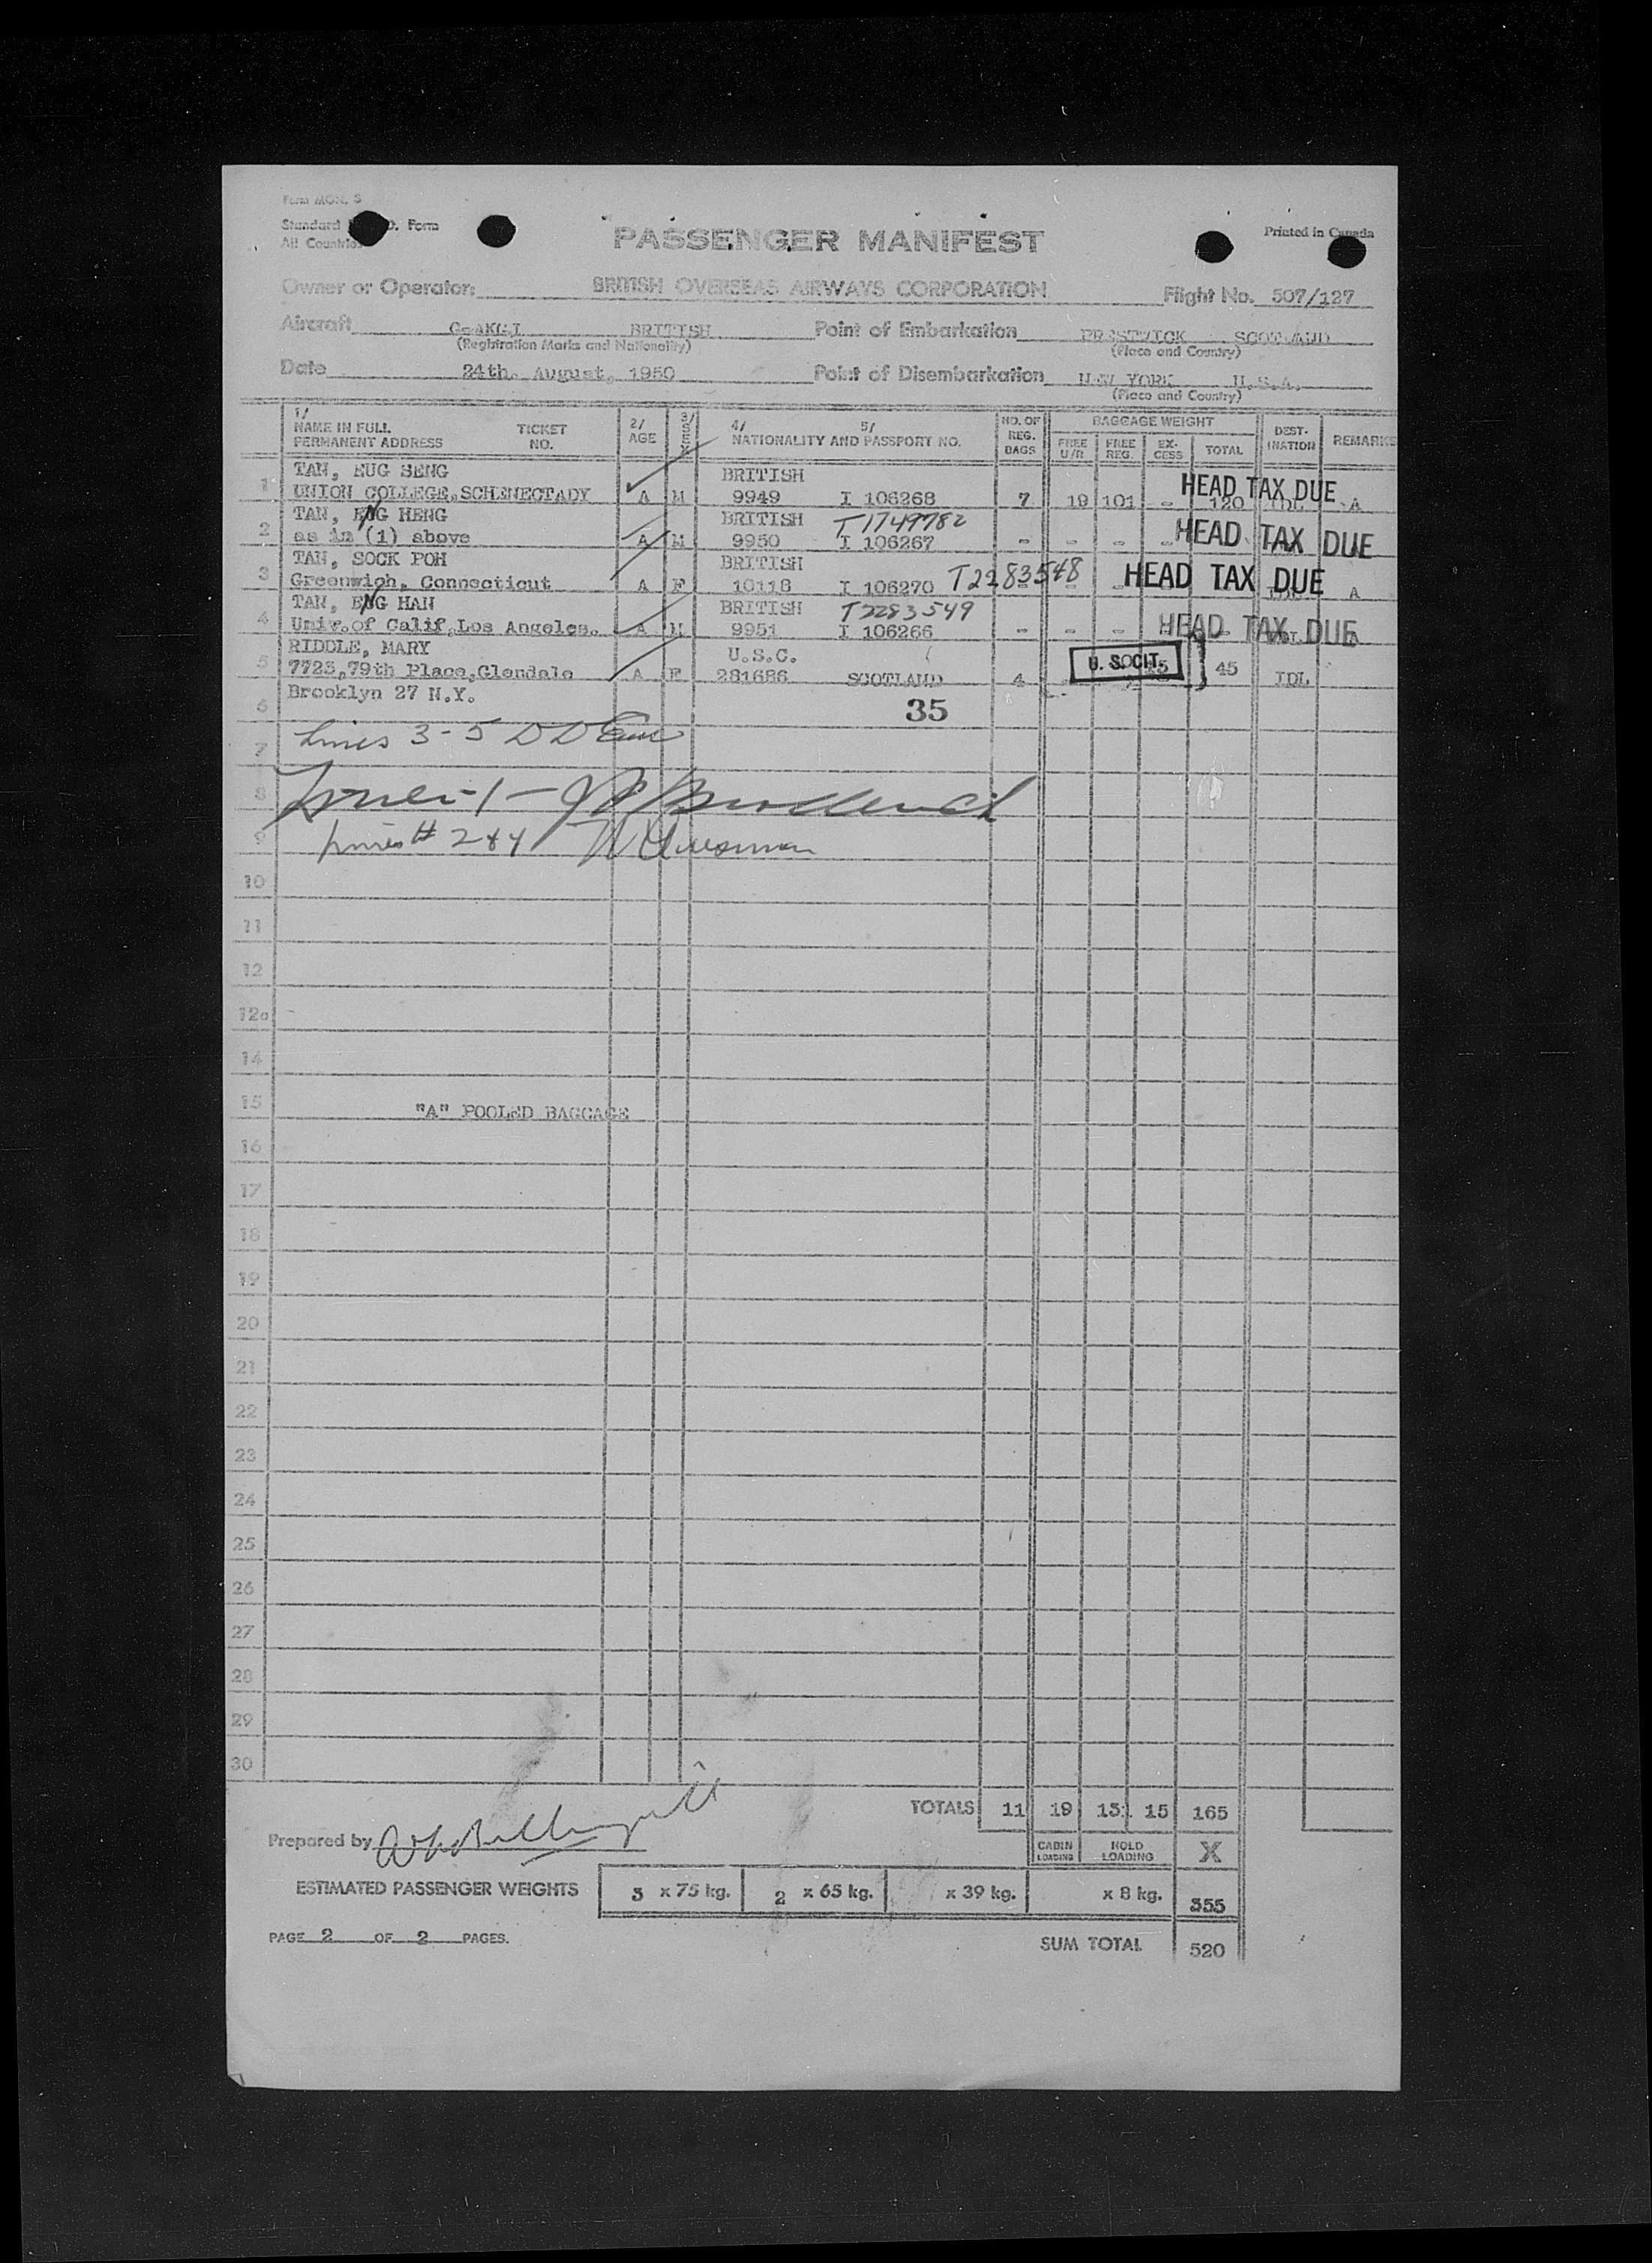 Form MON. 3
Standard I.C.A.O. Form
All Countries
PASSENGER MANIFEST
Printed in Canada
Owner or Operator: BRITISH OVERSEAS AIRWAYS CORPORATION Flight No. 507/127
Aircraft BRITISH Point of Embarkation PRESTWICK SCOTLAND
(Registration Marks and Nationality) (Place and Country)
Date 24th. August, 1950 Point of Disembarkation NEW YORK U.S.A.
(Place and Country)
1/ NAME IN FULL PERMANENT ADDRESS TICKET NO. 2/ AGE 3/ SEX 4/ 5/ NATIONALITY AND PASSPORT NO. NO. OF REG. BAGS BAGGAGE WEIGHT FREE U/R FREE REG. EX-CESS TOTAL DEST-INATION REMARKS
TAN, EUG SENG BRITISH
1 UNION COLLEGE, SCHENECTADY A M 9949 I 106268 7 19 101 - 120 IDL A HEAD TAX DUE
TAN, ENG HENG BRITISH T1749782
2 as in (1) above A M 9950 I 106267 - - - - HEAD TAX DUE
TAN, SOCK POH BRITISH
3 Greenwich, Connecticut A F 10118 I 106270 T2283548 - - - HEAD TAX DUE A
TAN, ENG HAN BRITISH T2283549
4 Univ. of Calif, Los Angeles. A M 9951 I 106266 - - - HEAD TAX DUE
RIDDLE, MARY U.S.C.
5 7723, 79th Place, Glendale A F 281686 SCOTLAND 4 U. S. CIT. 15 45 IDL
Brooklyn 27 N.Y.
6 35
7 Lines 3-5 DD
8
9 Lines # 2 & 4
10
11
12
12a
14
15 "A" POOLED BAGGAGE
16
17
18
19
20
21
22
23
24
25
26
27
28
29
30
TOTALS 11 19 131 15 165
Prepared by
CABIN LOADING HOLD LOADING X
ESTIMATED PASSENGER WEIGHTS 3 x 75 kg. 2 x 65 kg. x 39 kg. x 8 kg. 355
PAGE 2 OF 2 PAGES.
SUM TOTAL 520